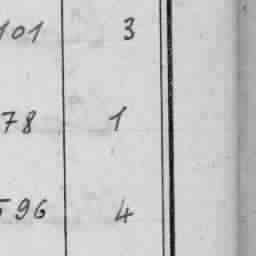 101 3
78 1
596 4